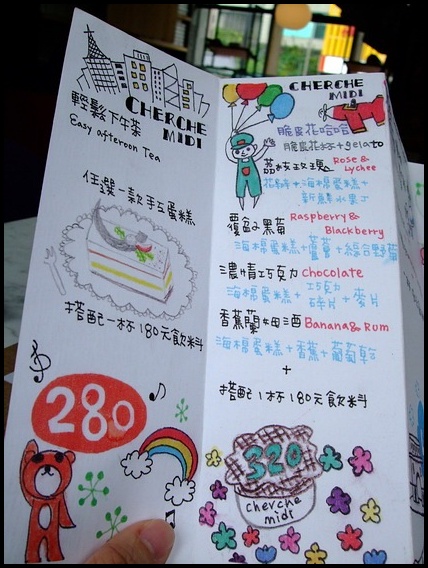 CHERCHE
MIDI
輕鬆下午茶
Easy afteroon Tea
任選一款手工蛋糕
搭配一杯180元飲料
280
CHERCHE
MIDI
脆蛋花哈哈
脆蛋花杯+gelato
荔枝玫瑰 Rose & Lychee
海綿蛋糕+
新鮮水果丁
覆盆&黑莓 Raspberry & Blackberry
海綿蛋糕+藍莓+綜合野莓
濃情巧克力 chocolate
海綿蛋糕+巧克力碎片+麥片
香蕉蘭姆酒 Banana & Rum
海綿蛋糕+香蕉+葡萄乾
+
搭配1杯180元飲料
320
cherche
midi